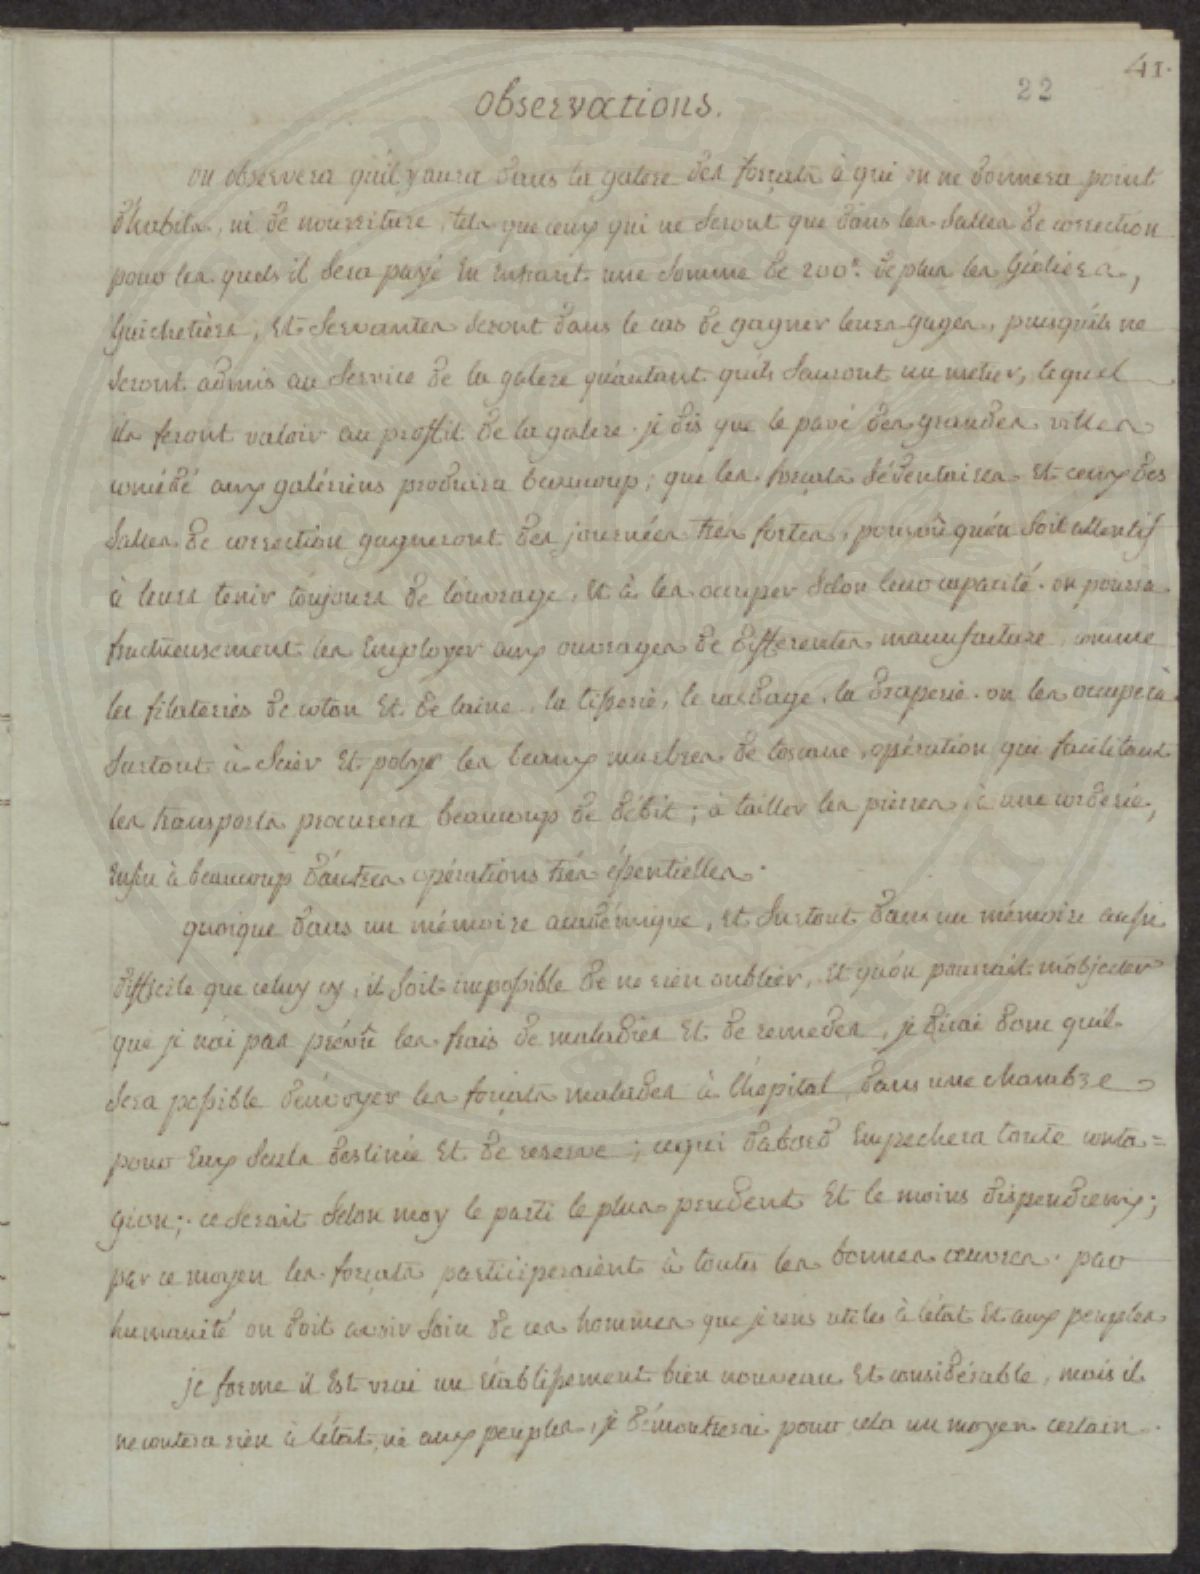 41.
22
observations.
on observera qu'il y aura dans la galere des forçats à qui on ne donnera point
d'habits, ni de nourriture, tels que ceux qui ne seront que dans les salles de correction
pour les quels il sera payé en entrant une somme de 200#. de plus les Géoliers,
Guichetiérs, et servantes seront dans le cas de gagner leurs gages, puisqu'ils ne
seront admis au service de la galere qu'autant qu'ils sauront un metier, lequel
ils feront valoir au proffit de la galere. je dis que le pavé des grandes villes
concédé aux galériens produira beaucoup; que les forçats sédentaires et ceux des
salles de correction gagneront des journées très fortes, pourvû qu'on soit attentif
à leurs tenir toujours de l'ouvrage, et à les occuper selon leur capacité. on pourra
fructueusement les employer aux ouvrages de differentes manufacture, comme
les filateries de coton et de laine, la tisserie, le cardage, la draperie. on les occupera
surtout à scier et polyr les beaux marbres de toscane, opération qui facilitant
les transports procurera beaucoup de débit; à tailler les pierres, à une corderie,
enfin à beaucoup d'autres opérations très éssentielles.
quoique dans un mémoire académique, et surtout dans un mémoire aussi
difficile que celuy cy, il soit impossible de ne rien oublier, et qu'on pourrait m'objecter
que je n'ai pas prévû les frais de maladies et de remedes, je dirai donc qu'il
sera possible d'envoyer les forçats malades à l'hôpital dans une chambre
pour eux seuls destinée et de reserve; ce qui d'abord empechera toute conta=
gion; ce serait selon moy le parti le plus prudent et le moins dispendieux;
par ce moyen les forçats participeraient à toutes les bonnes œuvres. par
humanité on doit avoir soin de ces hommes que je rens utiles à l'état et aux peuples
je forme il est vrai un établissement bien nouveau et considérable, mais il
ne coutera rien à l'état, ni aux peuples, je démontrerai pour cela un moyen certain.